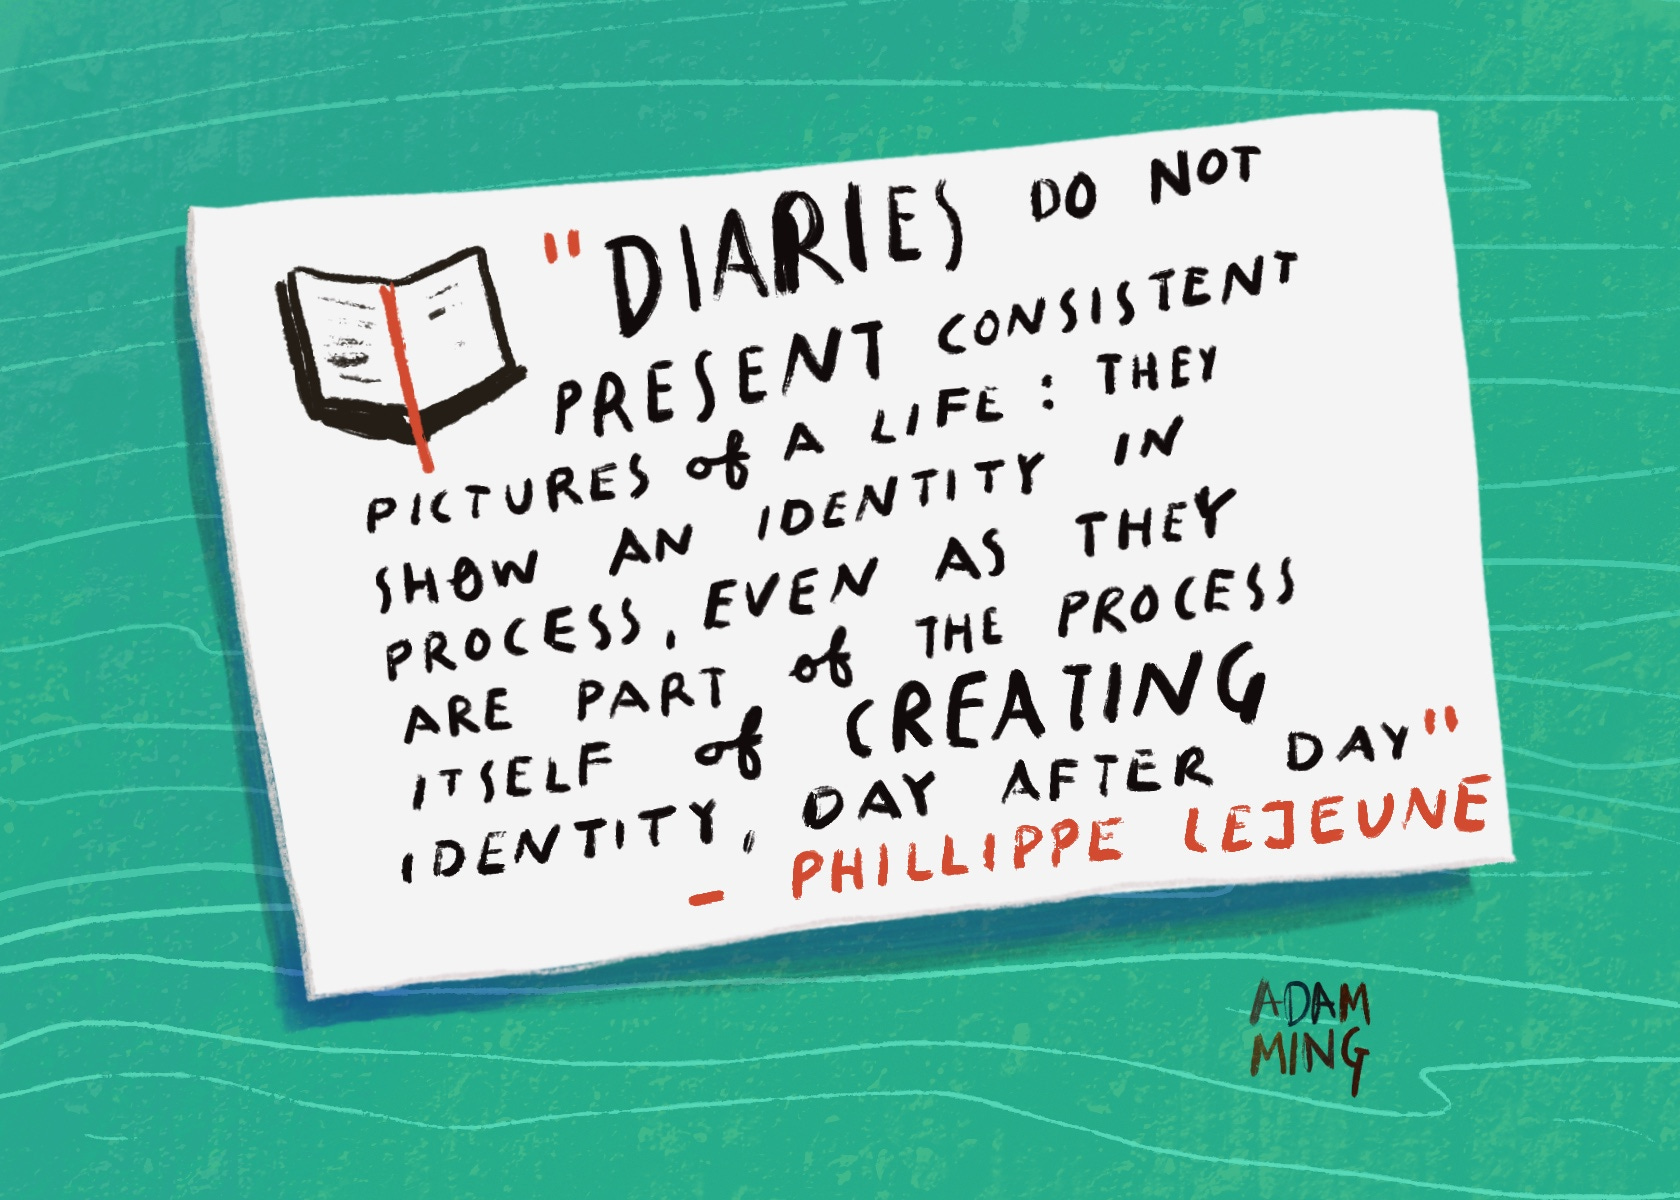 "DIARIES DO NOT
PRESENT CONSISTENT
PICTURES of A LIFE : THEY
SHOW AN IDENTITY IN
PROCESS, EVEN AS THEY
ARE PART of THE PROCESS
ITSELF of CREATING
IDENTITY, DAY AFTER DAY"
- PHILLIPPE LEJEUNE
ADAM
MING